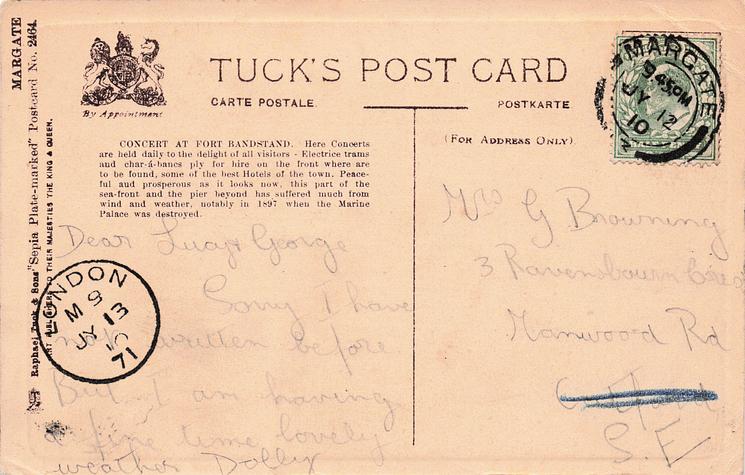 MARGATE
Raphael Tuck & Sons' "Sepia Plate-marked" Postcard No. 2464.
ART PUBLISHERS TO THEIR MAJESTIES THE KING & QUEEN.
By Appointment
TUCK'S POST CARD
CARTE POSTALE.
POSTKARTE
(FOR ADDRESS ONLY).
CONCERT AT FORT BANDSTAND. Here Concerts
are held daily to the delight of all visitors - Electrice trams
and char-á-bancs ply for hire on the front where are
to be found, some of the best Hotels of the town. Peace-
ful and prosperous as it looks now, this part of the
sea-front and the pier beyond has suffered much from
wind and weather, notably in 1897 when the Marine
Palace was destroyed.
MARGATE
9 45PM
JY 12
10
LONDON
M 9
JY 13
10
71
Dear Lucy & George
Sorry I have
not written before
But I am having
a fine time lovely
weather Dolly
Mrs G Browning
3 Ravensbourn
Manwood Rd
Catford
S.E